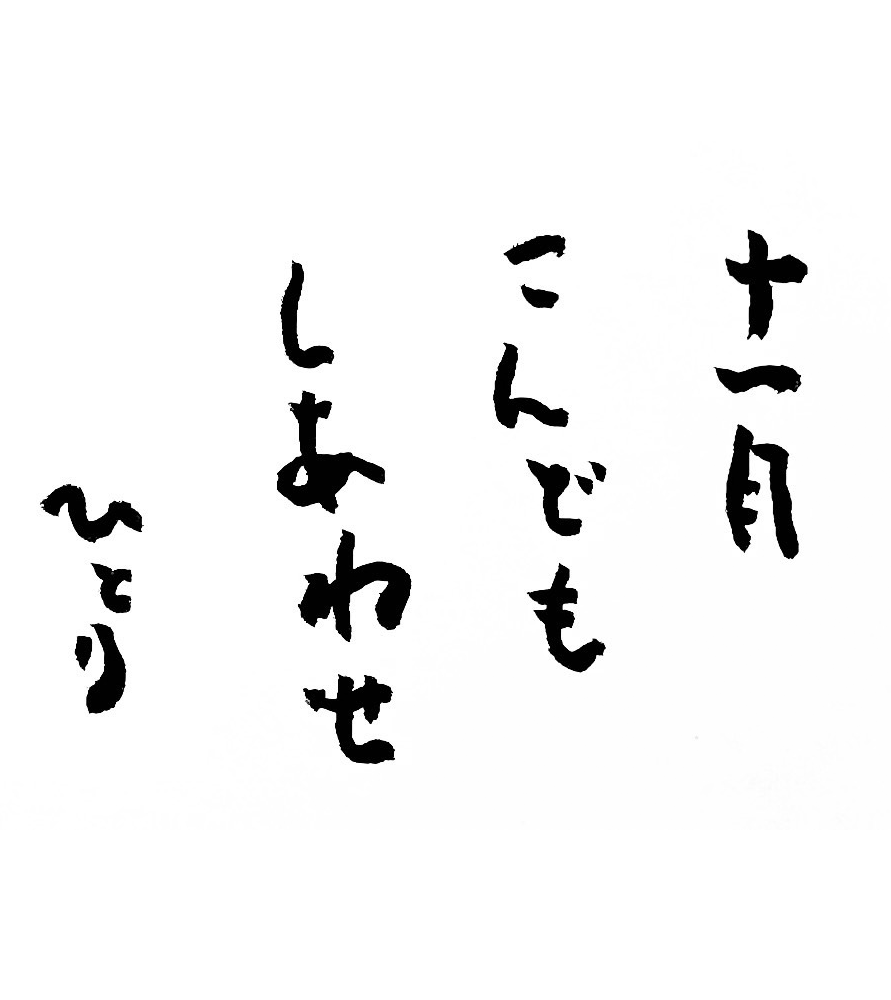 十一月
こんども
しあわせ
ひとり